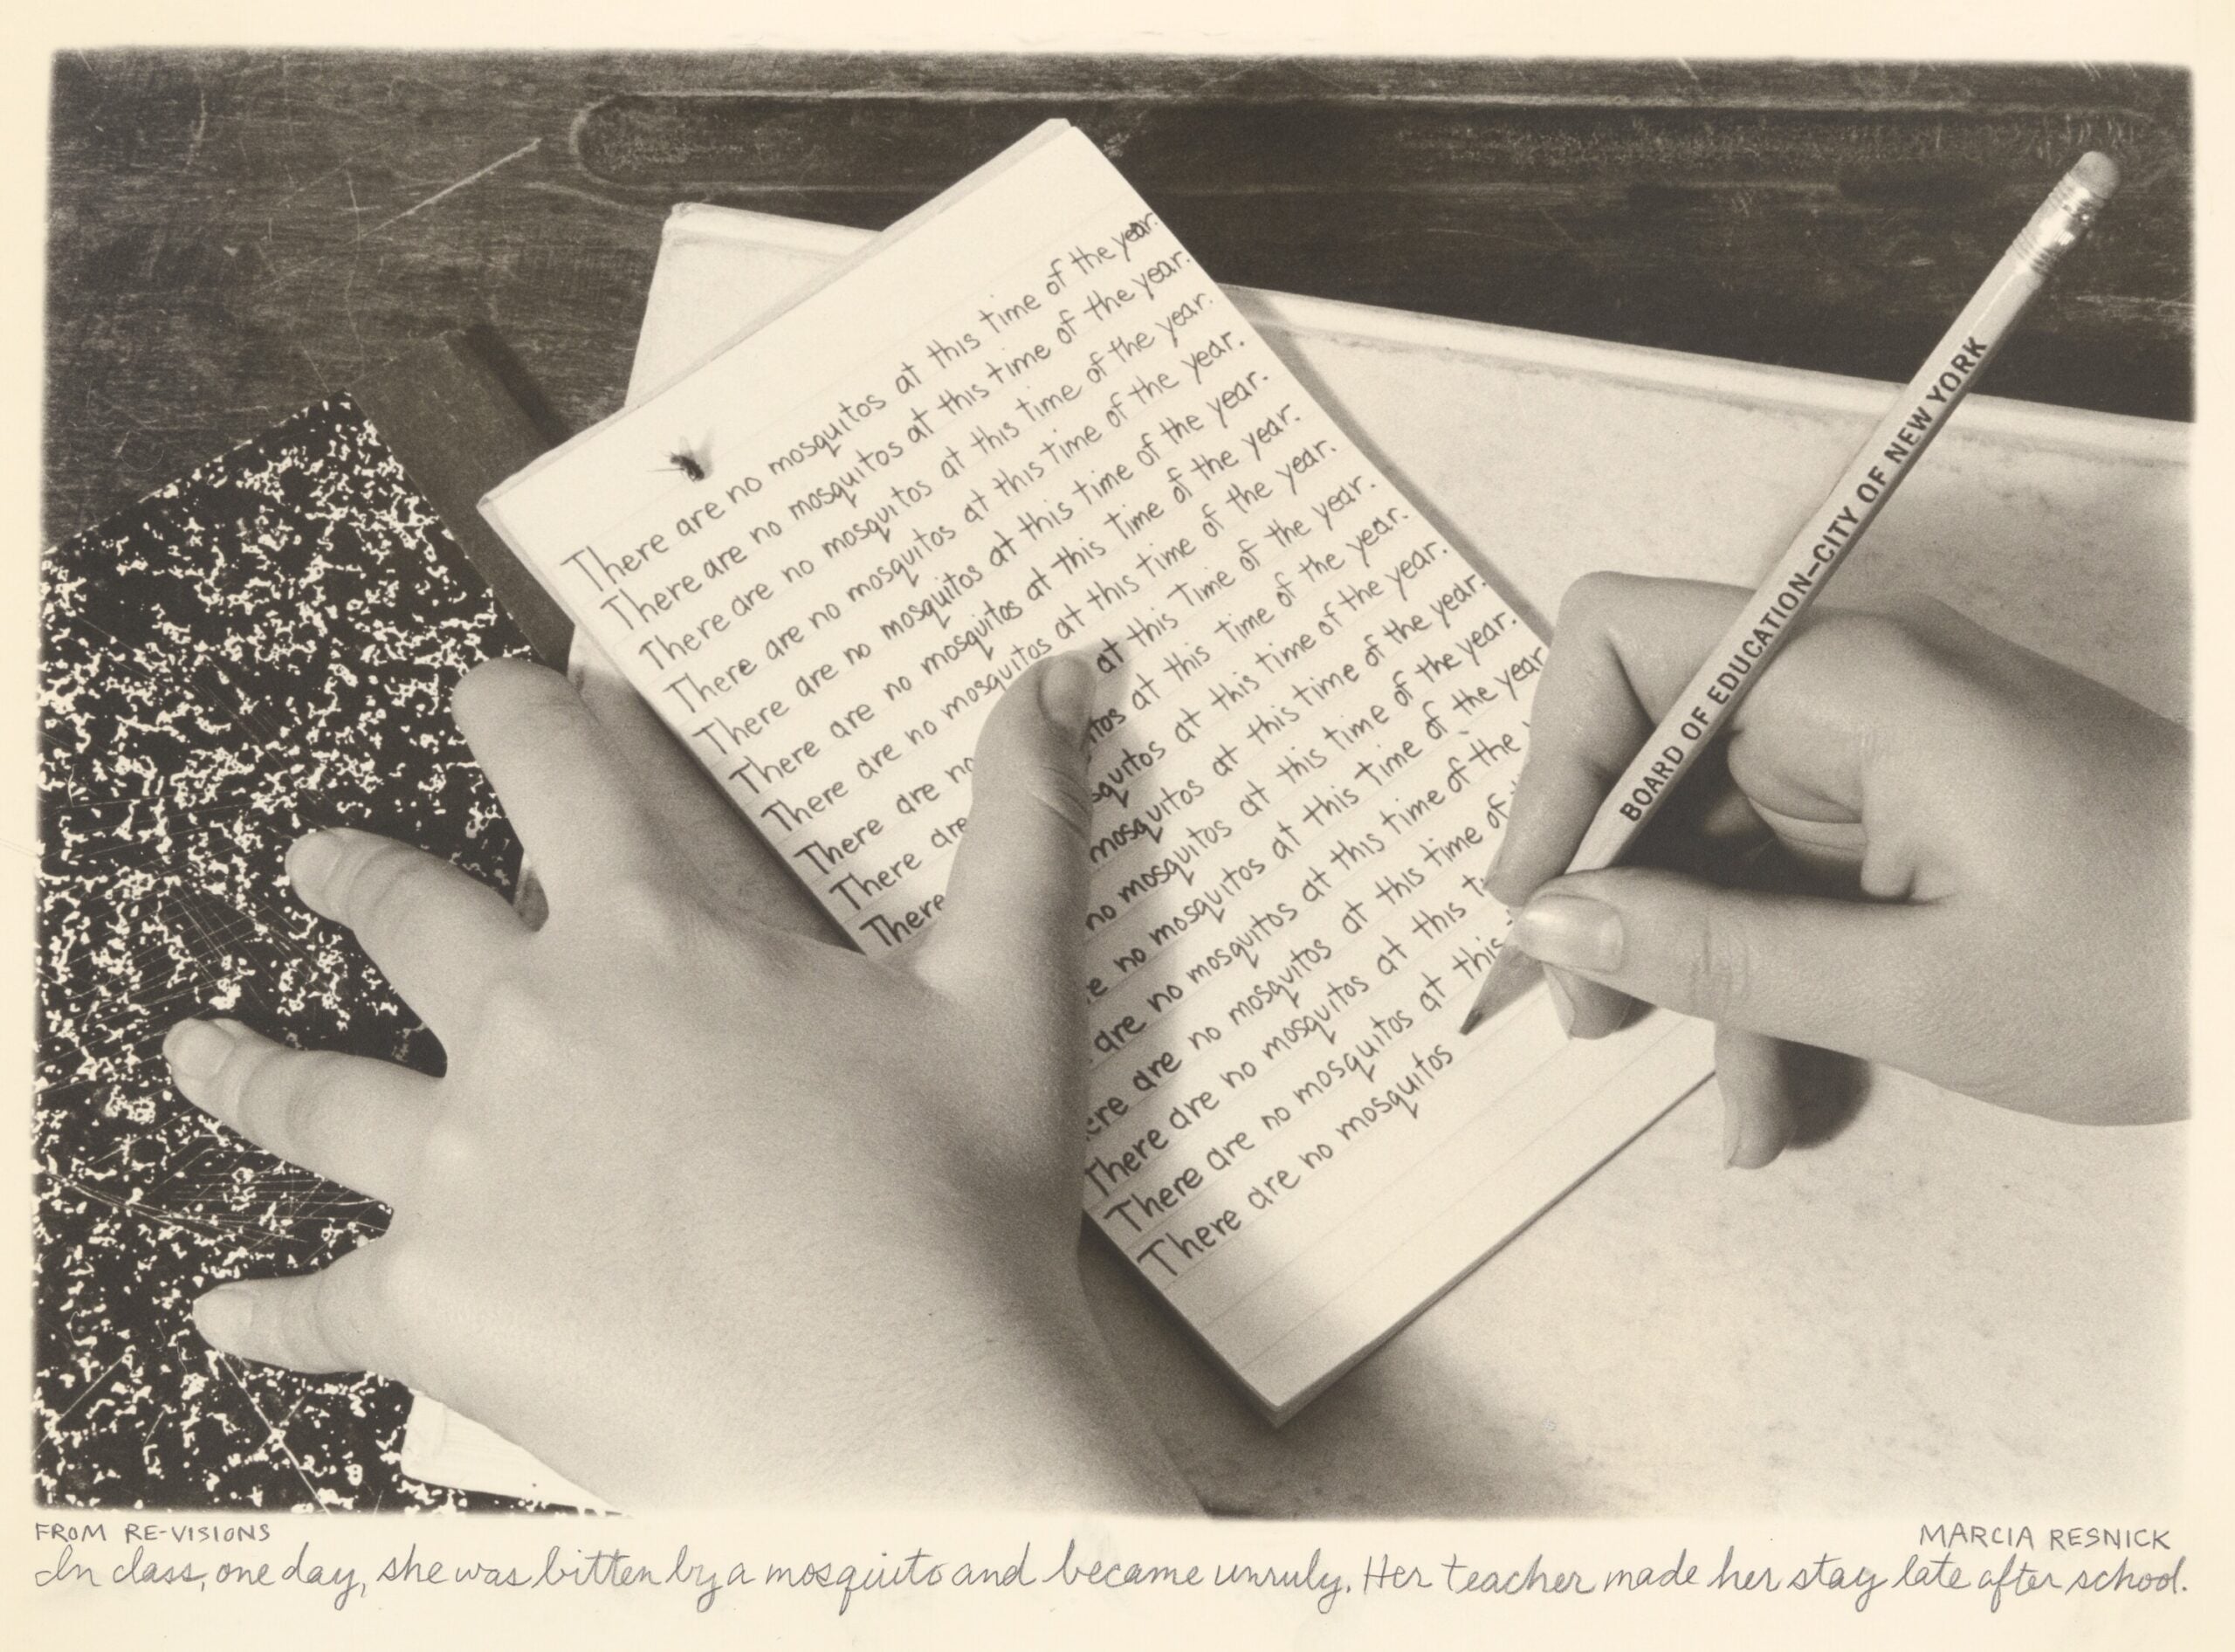 There are no mosquitos at this time of the year.
There are no mosquitos at this time of the year.
There are no mosquitos at this time of the year.
There are no mosquitos at this time of the year.
There are no mosquitos at this time of the year.
There are no mosquitos at this time of the year.
There are no mosquitos at this time of the year.
There are no at this time of the year.
There are at this time of the year.
There at this time of the year.
mosquitos at this time of the year.
no mosquitos at this time of the year.
no mosquitos at this time of the year
are no mosquitos at this time of the
are no mosquitos at this time of
There are no mosquitos at this
There are no mosquitos at this
There are no mosquitos
BOARD OF EDUCATION–CITY OF NEW YORK
FROM RE-VISIONS
MARCIA RESNICK
In class, one day, she was bitten by a mosquito and became unruly. Her teacher made her stay late after school.